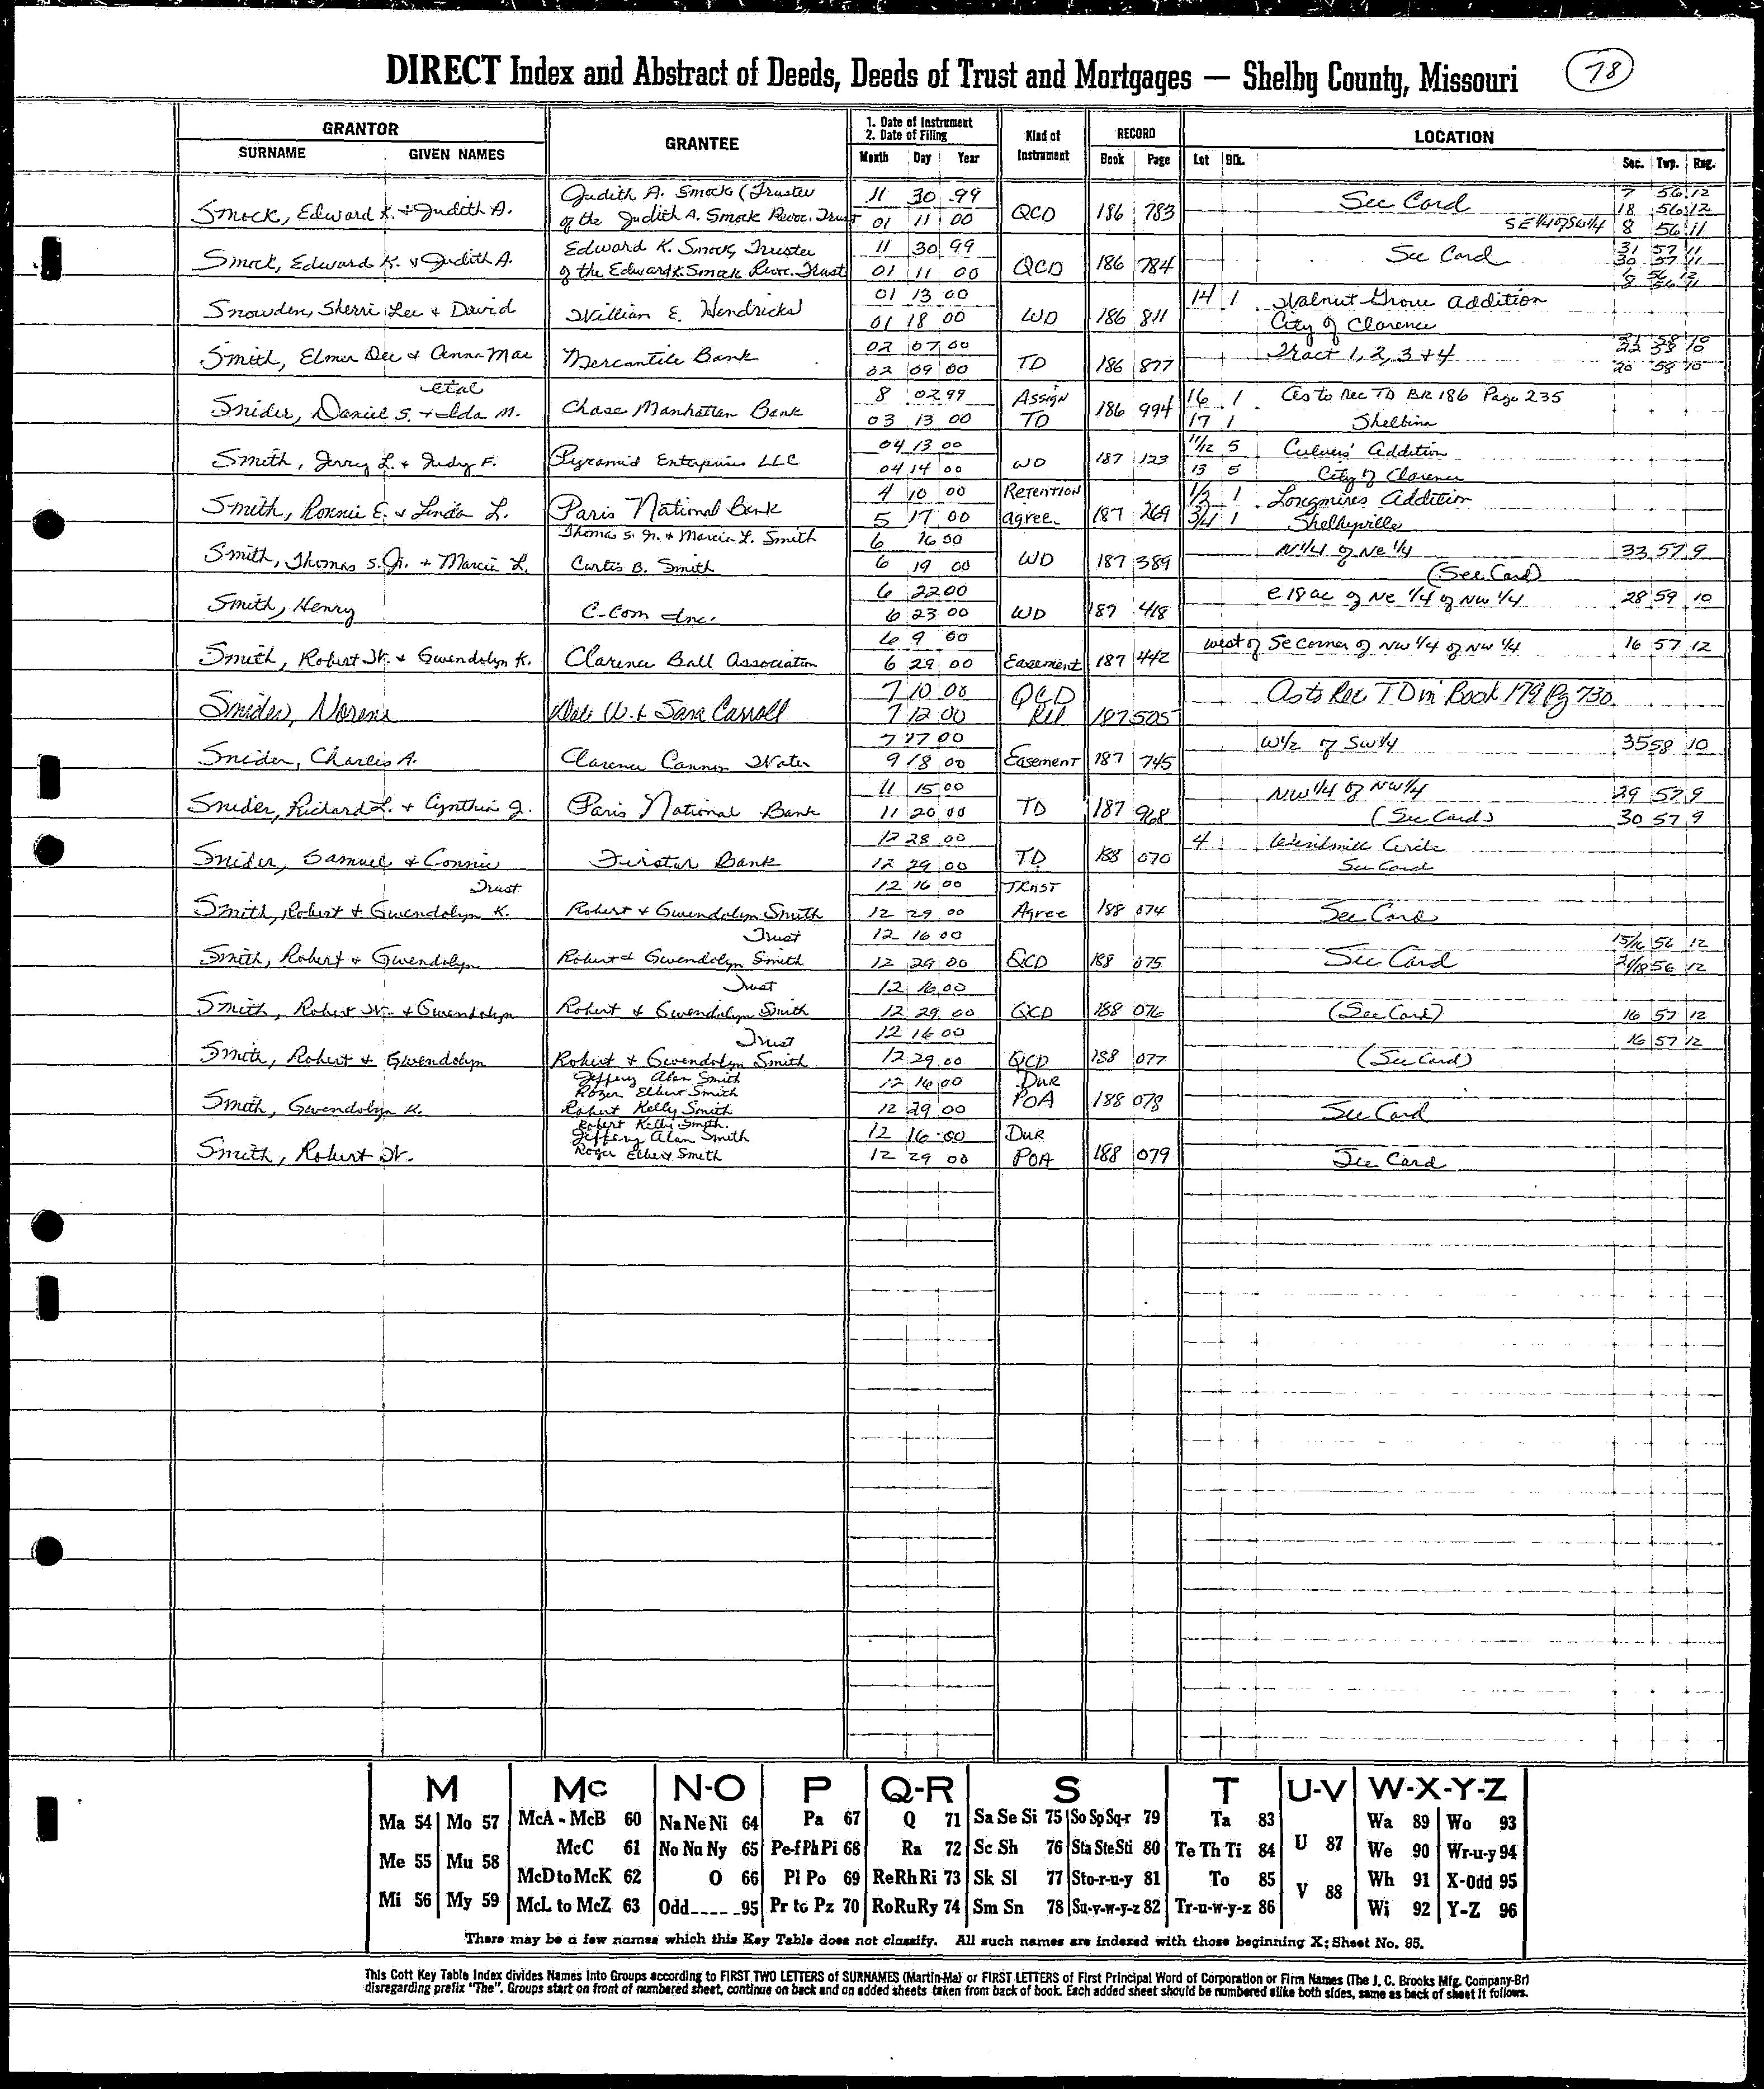 DIRECT Index and Abstract of Deeds, Deeds of Trust and Mortgages — Shelby County, Missouri 78
GRANTOR GRANTEE 1. Date of Instrument 2. Date of Filing Kind of Instrument RECORD LOCATION
SURNAME GIVEN NAMES Month Day Year Book Page Lot Blk. Sec. Twp. Rng.
Judith A. Smock (Trustee 11 30 99 7 56 12
Smock, Edward K. + Judith A. of the Judith A. Smock Revoc. Trust 01 11 00 QCD 186 783 See Card 18 56 12
SE 1/4 of SW 1/4 8 56 11
Edward K. Smock, Trustee 11 30 99 31 57 11
Smock, Edward K. & Judith A. of the Edward K. Smock Revoc. Trust 01 11 00 QCD 186 784 See Card 30 57 11
01 13 00 14 1 Walnut Grove Addition
Snowden, Sherri Lee + David William E. Hendricks 01 18 00 WD 186 811 City of Clarence
02 07 00 Tract 1, 2, 3 + 4 22 58 10
Smith, Elmer Dee & Anna Mae Mercantile Bank 02 09 00 TD 186 877 20 58 10
etal 8 02 99 Assign 16 1 As to Rec TD BK 186 Page 235
Snider, Daniel S. + Ida M. Chase Manhattan Bank 03 13 00 TD 186 994 17 1 Shelbina
04 13 00 11/12 5 Culvers' Addition
Smith, Jerry L. + Judy F. Pyramid Enterprises LLC 04 14 00 WD 187 123 13 5 City of Clarence
4 10 00 Retention 1/2 1 Longmires Addition
Smith, Ronnie E. & Linda L. Paris National Bank 5 17 00 agree. 187 269 3/4 1 Shelbyville
Thomas S. Jr. + Marcia L. Smith 6 16 00 N 1/4 of Ne 1/4 33 57 9
Smith, Thomas S. Jr. + Marcia L. Curtis B. Smith 6 19 00 WD 187 389 (See Card)
6 22 00 e 18 ac of Ne 1/4 of NW 1/4 28 59 10
Smith, Henry C-Com Inc. 6 23 00 WD 187 418
6 9 00 west of Se corner of NW 1/4 of NW 1/4 16 57 12
Smith, Robert W. & Gwendolyn K. Clarence Ball Association 6 29 00 Easement 187 442
7 10 00 QCD As to Rec TD in Book 179 Pg 730
Snider, Norene Dale W. & Sara Carroll 7 12 00 Rel 187 505
7 17 00 W 1/2 of SW 1/4 35 58 10
Snider, Charles A. Clarence Cannon Water 9 18 00 Easement 187 745
11 15 00 NW 1/4 of NW 1/4 29 57 9
Snider, Richard L. + Cynthia J. Paris National Bank 11 20 00 TD 187 968 (See Card) 30 57 9
12 28 00 4 Windmill Circle
Snider, Samuel & Connie Firstar Bank 12 29 00 TD 188 070 See Card
Trust 12 16 00 Trust
Smith, Robert + Gwendolyn K. Robert + Gwendolyn Smith 12 29 00 Agree 188 074 See Card
Trust 12 16 00 15/16 56 12
Smith, Robert + Gwendolyn Robert & Gwendolyn Smith 12 29 00 QCD 188 075 See Card 21/18 56 12
Trust 12 16 00
Smith, Robert W. + Gwendolyn Robert & Gwendolyn Smith 12 29 00 QCD 188 076 (See Card) 16 57 12
Trust 12 16 00 16 57 12
Smith, Robert & Gwendolyn Robert + Gwendolyn Smith 12 29 00 QCD 188 077 (See Card)
Jeffery Alan Smith 12 16 00 Dur
Roger Elbert Smith
Smith, Gwendolyn K. Robert Kelly Smith 12 29 00 POA 188 078 See Card
Robert Kelly Smith.
Jeffery Alan Smith 12 16 00 Dur
Smith, Robert W. Roger Elbert Smith 12 29 00 POA 188 079 See Card
M Mc N-O P Q-R S T U-V W-X-Y-Z
Ma 54 Mo 57 McA - McB 60 Na Ne Ni 64 Pa 67 Q 71 Sa Se Si 75 So Sp Sq-r 79 Ta 83 Wa 89 Wo 93
Me 55 Mu 58 McC 61 No Nu Ny 65 Pe-f Ph Pi 68 Ra 72 Sc Sh 76 Sta Ste Sti 80 Te Th Ti 84 U 87 We 90 Wr-u-y 94
McD to McK 62 O 66 Pl Po 69 Re Rh Ri 73 Sk Sl 77 Sto-r-u-y 81 To 85 V 88 Wh 91 X-Odd 95
Mi 56 My 59 McL to McZ 63 Odd 95 Pr to Pz 70 Ro Ru Ry 74 Sm Sn 78 Su-v-w-y-z 82 Tr-u-w-y-z 86 Wi 92 Y-Z 96
There may be a few names which this Key Table does not classify. All such names are indexed with those beginning X; Sheet No. 95.
This Cott Key Table Index divides Names into Groups according to FIRST TWO LETTERS of SURNAMES (Martin-Ma) or FIRST LETTERS of First Principal Word of Corporation or Firm Names (The J. C. Brooks Mfg. Company-Br)
disregarding prefix "The". Groups start on front of numbered sheet, continue on back and on added sheets taken from back of book. Each added sheet should be numbered alike both sides, same as back of sheet it follows.